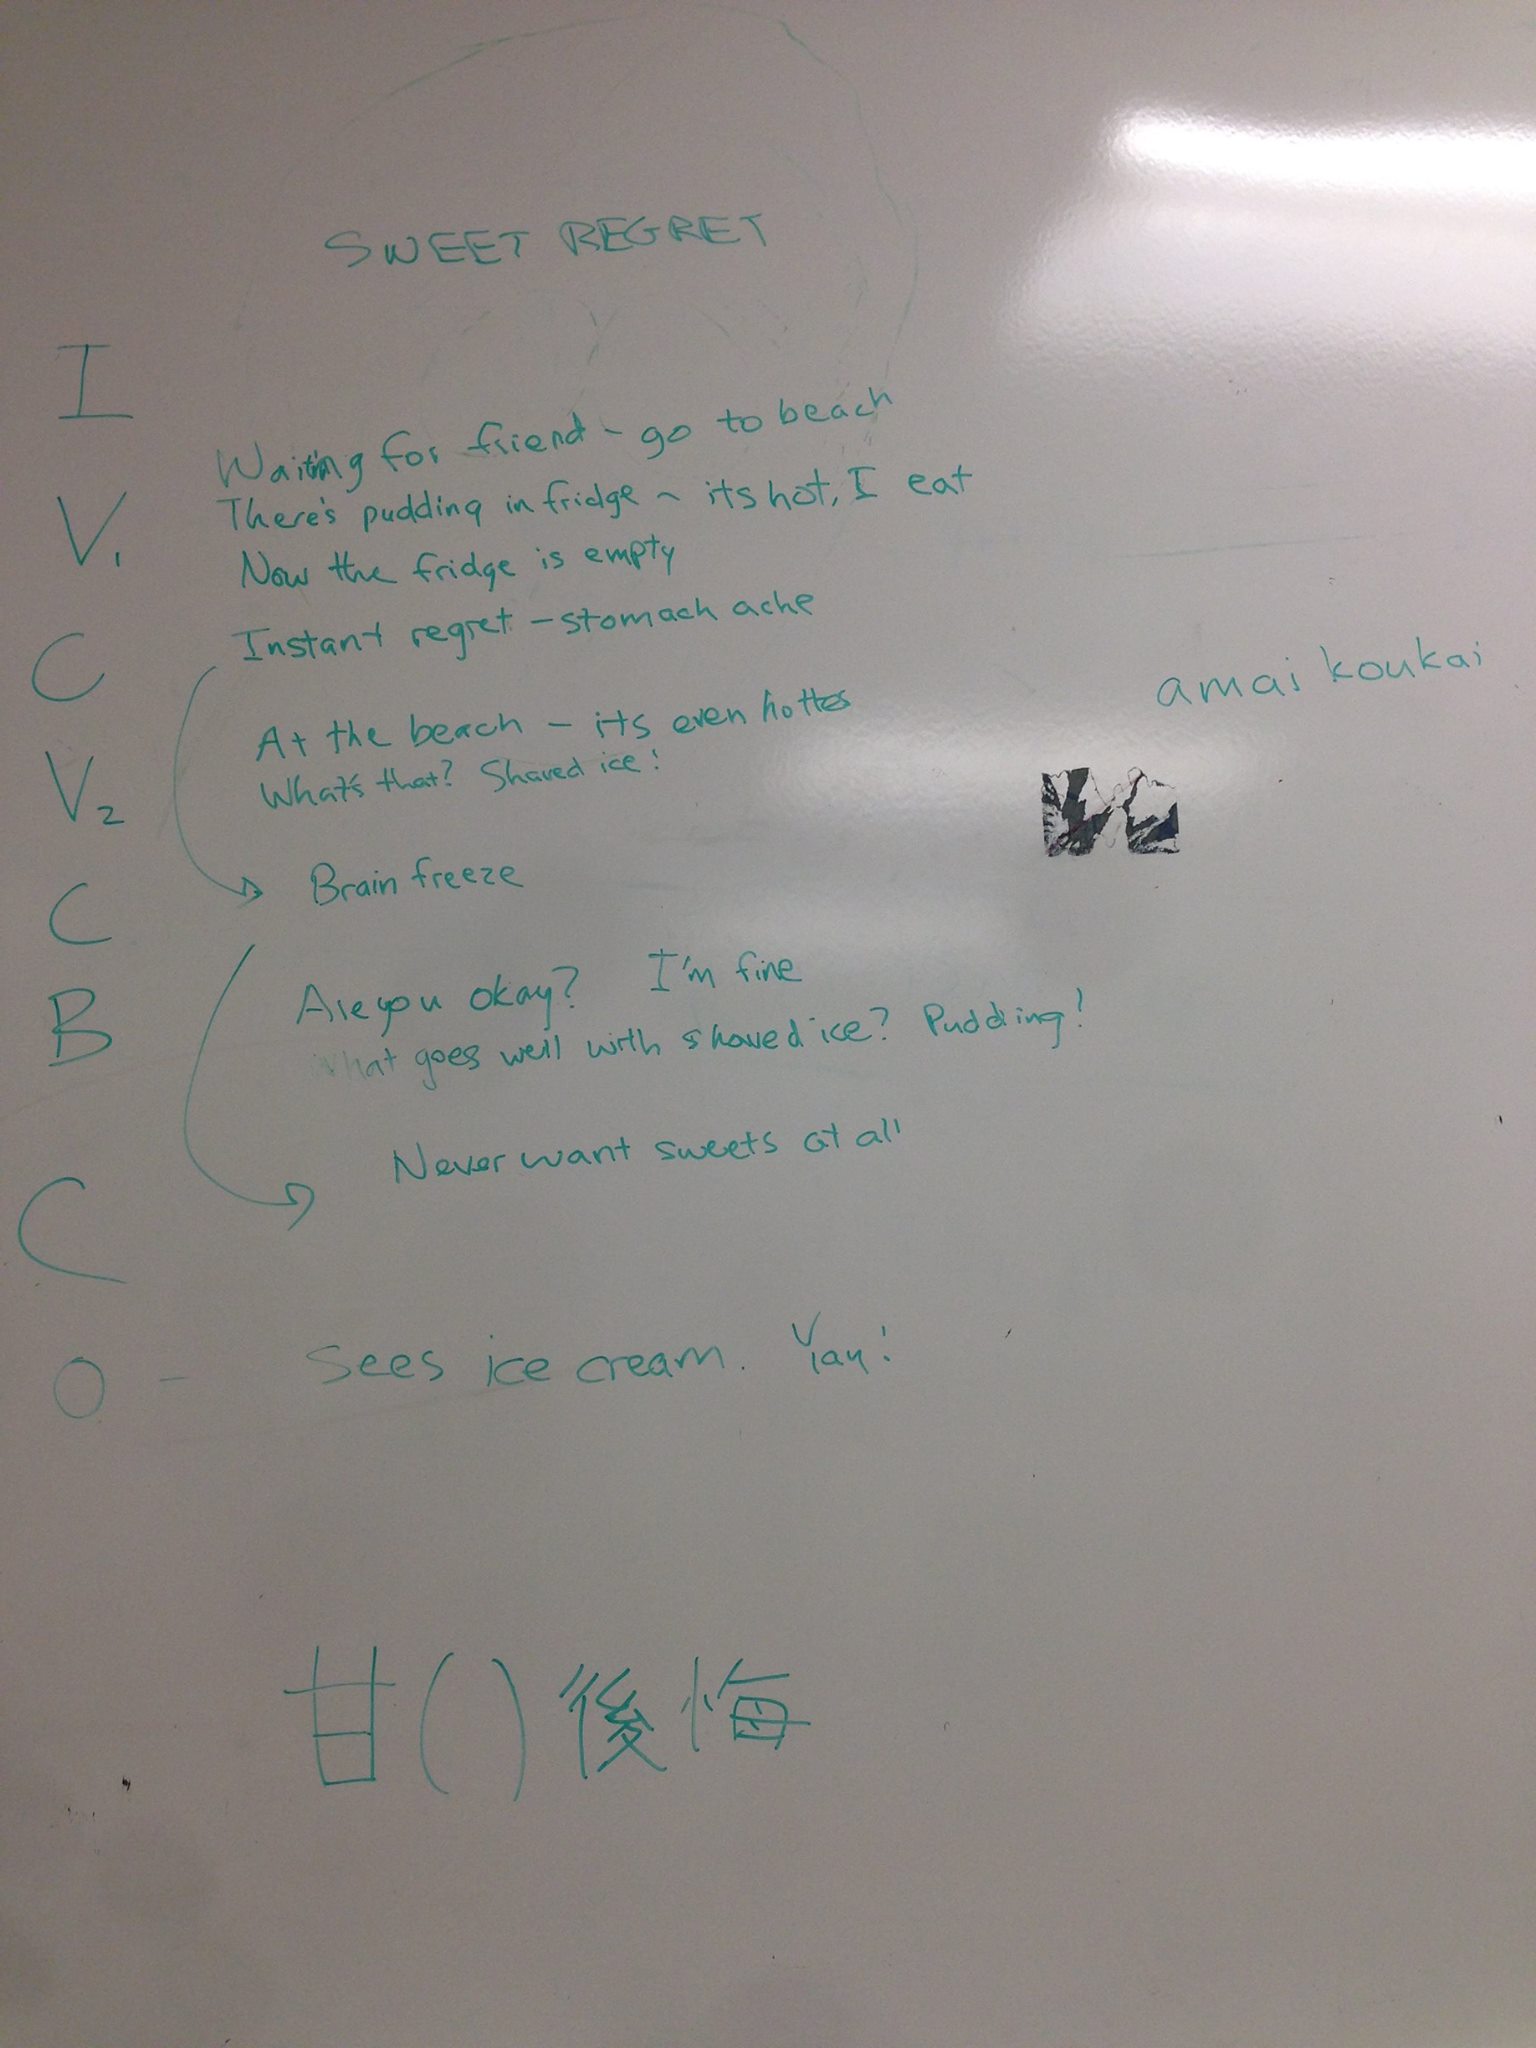 SWEET REGRET
I
Waiting for friend - go to beach
V1 There's pudding in fridge - its hot, I eat
Now the fridge is empty
C Instant regret - stomach ache
amai koukai
At the beach - its even hotter
V2 What's that? Shaved ice!
C Brain freeze
Are you okay? I'm fine
B What goes well with shaved ice? Pudding!
C Never want sweets at all
O - Sees ice cream. Yay!
甘( )後悔